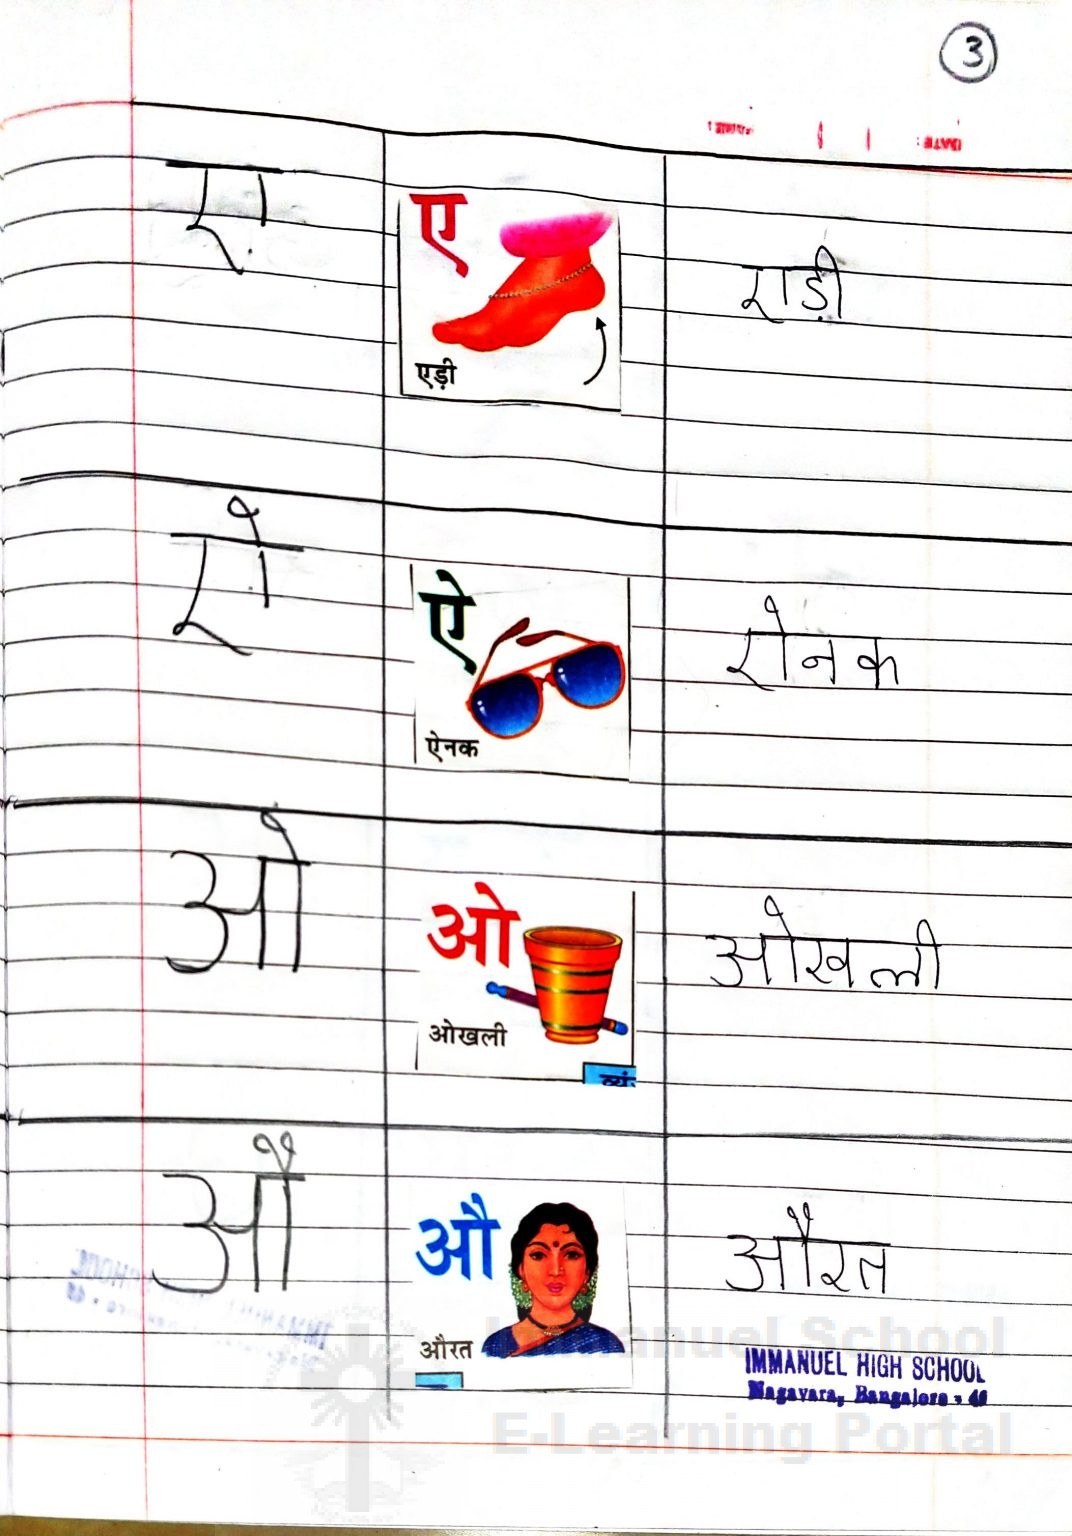 3
DATE :
ए
ए
एड़ी
एड़ी
ऐ
ऐ
ऐनक
ऐनक
ओ
ओ
ओखली
ओखली
व्यं
औ
औ
औरत
औरत
Immanuel School
IMMANUEL HIGH SCHOOL
Nagavara, Bangalore - 45
E-Learning Portal